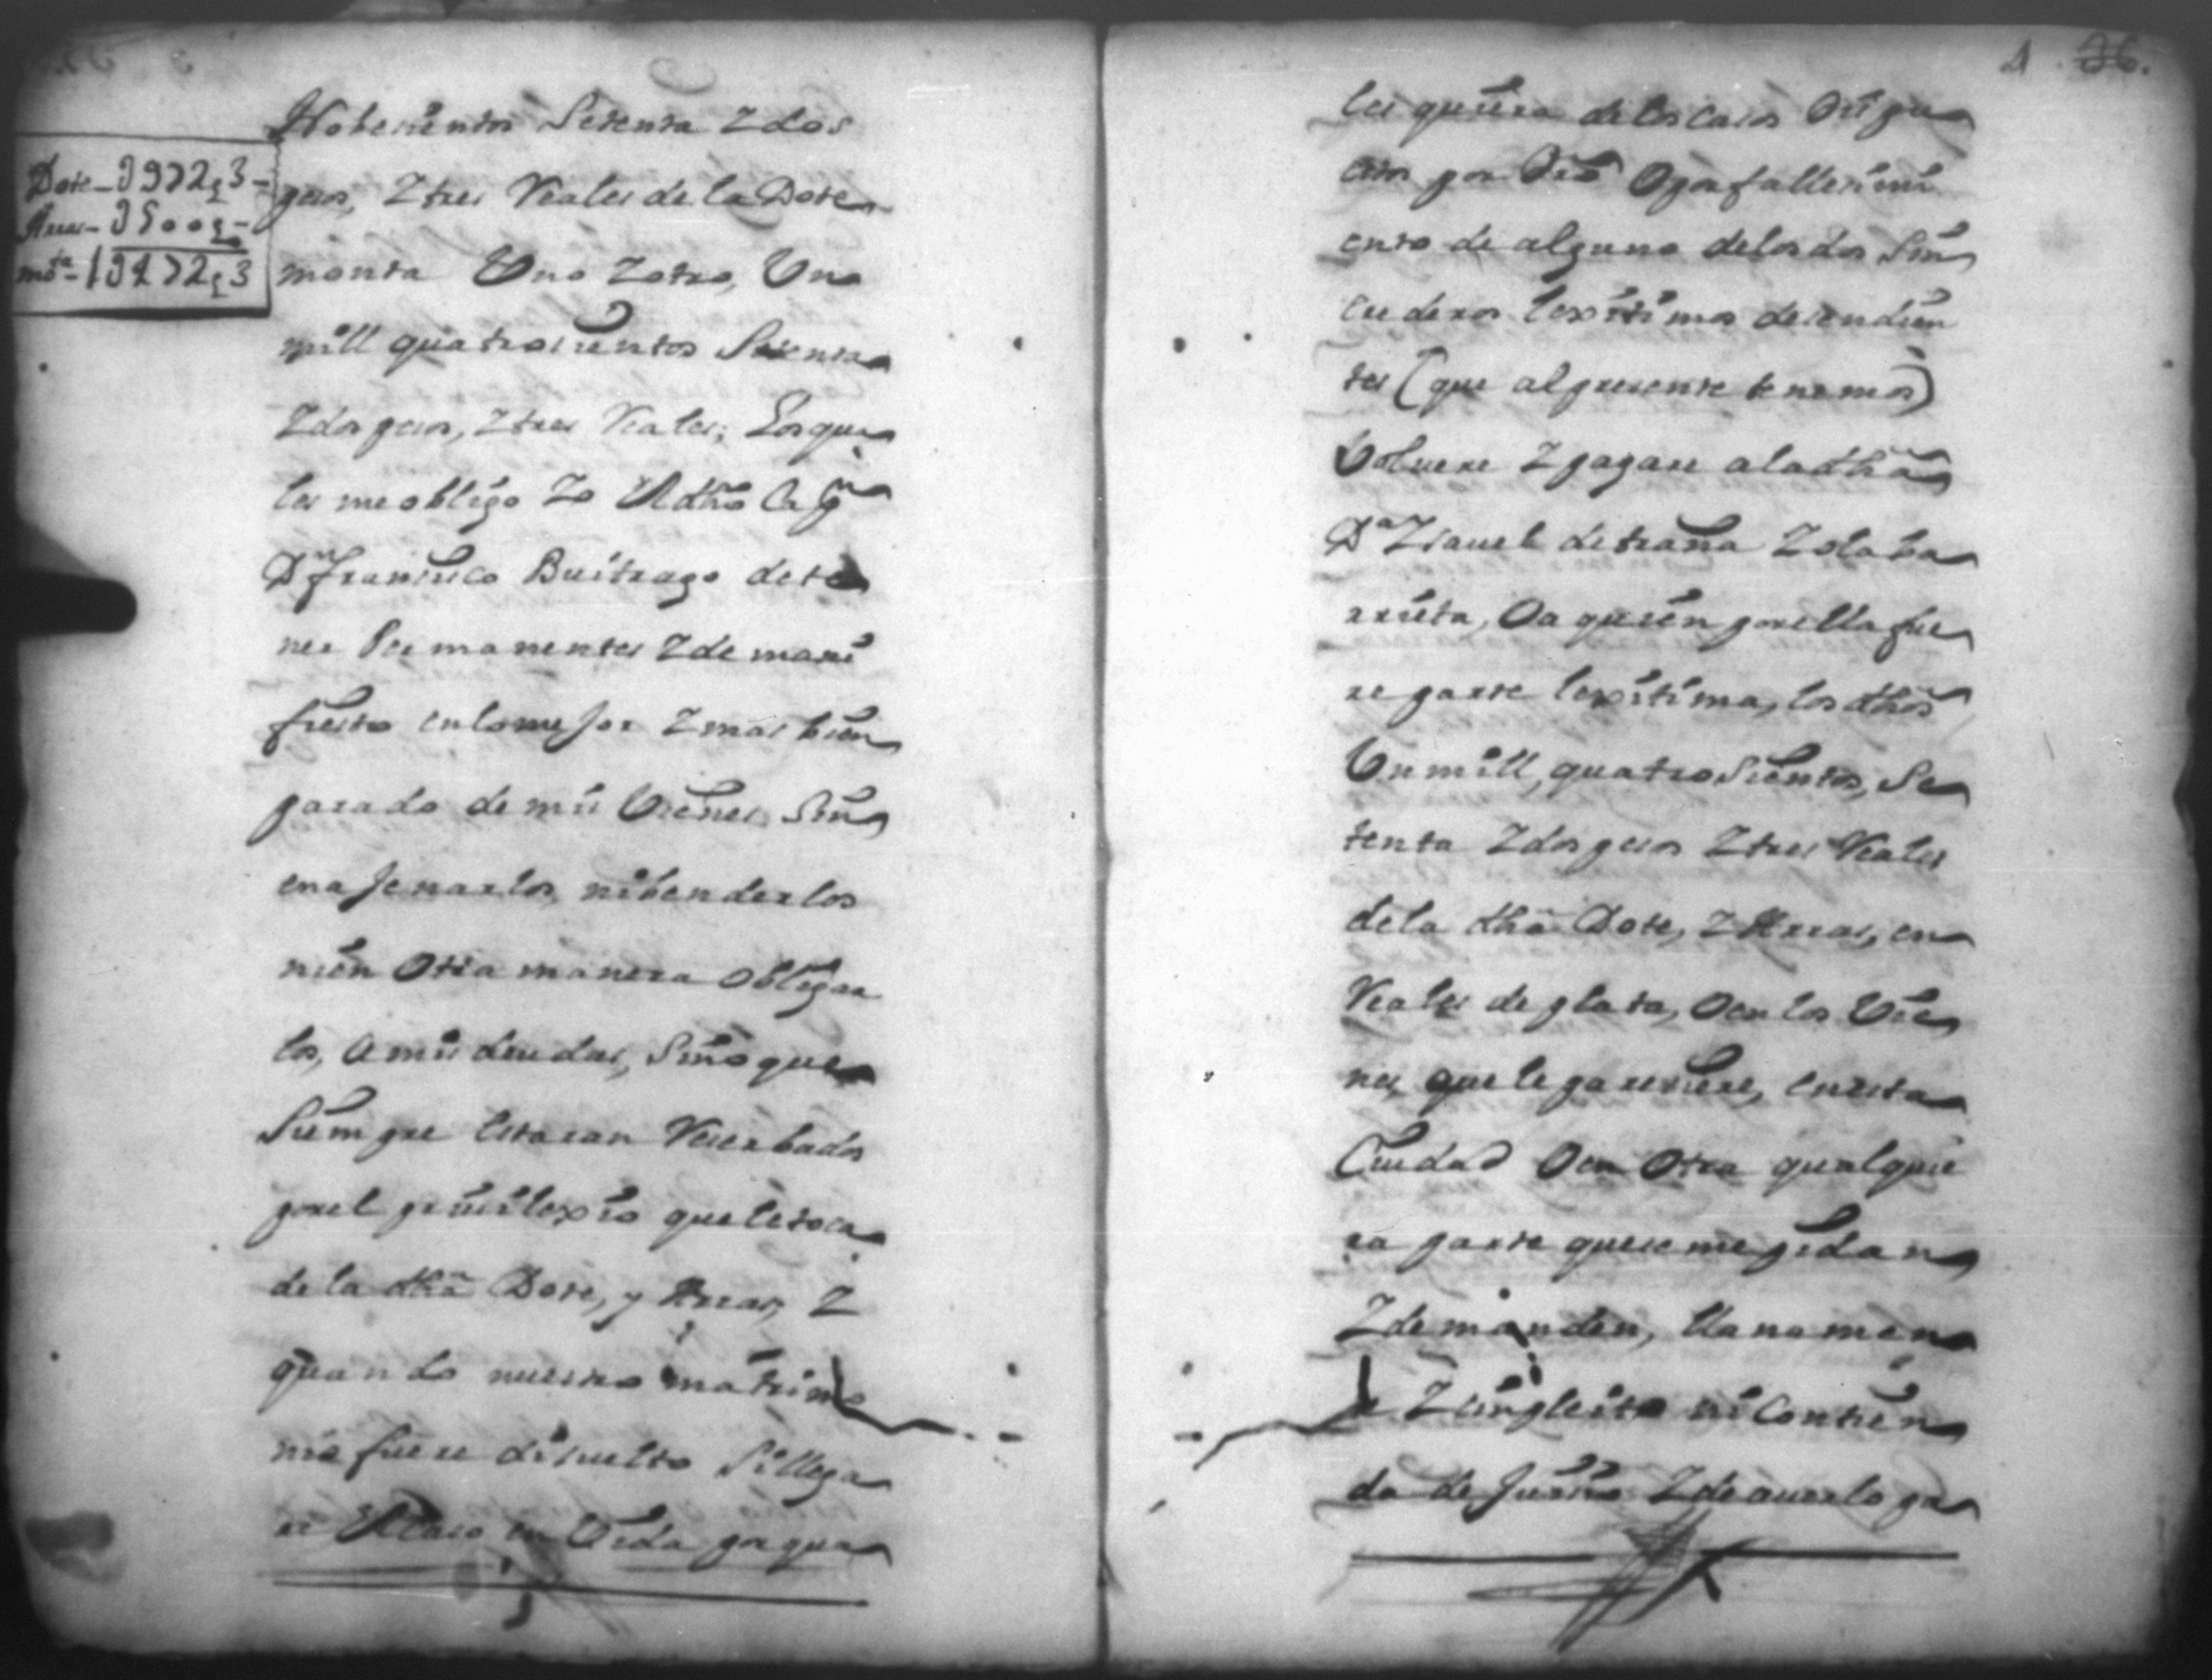 Nobesientos Setenta Y dos
Dote - 972 p 3 -
Arras - 500 p -
mo.ta - 1472 p 3
pesos, Y tres Reales de la Dote
monta Uno Y otro, Un
mill quatrosientos Setenta
Y dos pesos, Y tres Reales; Los qua
les me obligo Yo El dho Cap.n
D.n Franсisco Buitrago de te
ner Permanentes Y de mani
fiesto en lo mejor Y mas bien
parado de mis Vienes Sin
enaJenarlos, ni benderlos
ni en Otra manera obligar
los, a mis deudas, Sino que
Siempre Estaran Reserbados
por el priuilexio que le toca
de la dha Dote, y Arras, Y
quando nuestro matrimo
nio fuere disuelto Si llega
re El Caso en Vida por qua
4 36.
les quiera de los casos Dispu
estos por Dro O por fallesimi
ento de alguno de los dos Sin
lexitimos desendien
tes (que al presente tenemos)
Voluere Y pagare a la dha
D.a Ysauel de traña Y olaba
rrieta, O a quien por ella fue
re parte lexitima, los dhos
Un mill, quatro Sientos, Se
tenta Y dos pesos Y tres Reales
de la dha Dote, Y Arras, en
Reales de plata, O en los Vie
nes que le paresiere, en esta
Ciudad O en Otra qualquie
ra parte que se me pidan
Y demanden, llanamen
te Y sin pleito ni Contien
da de Juisio Y de auerlo pa